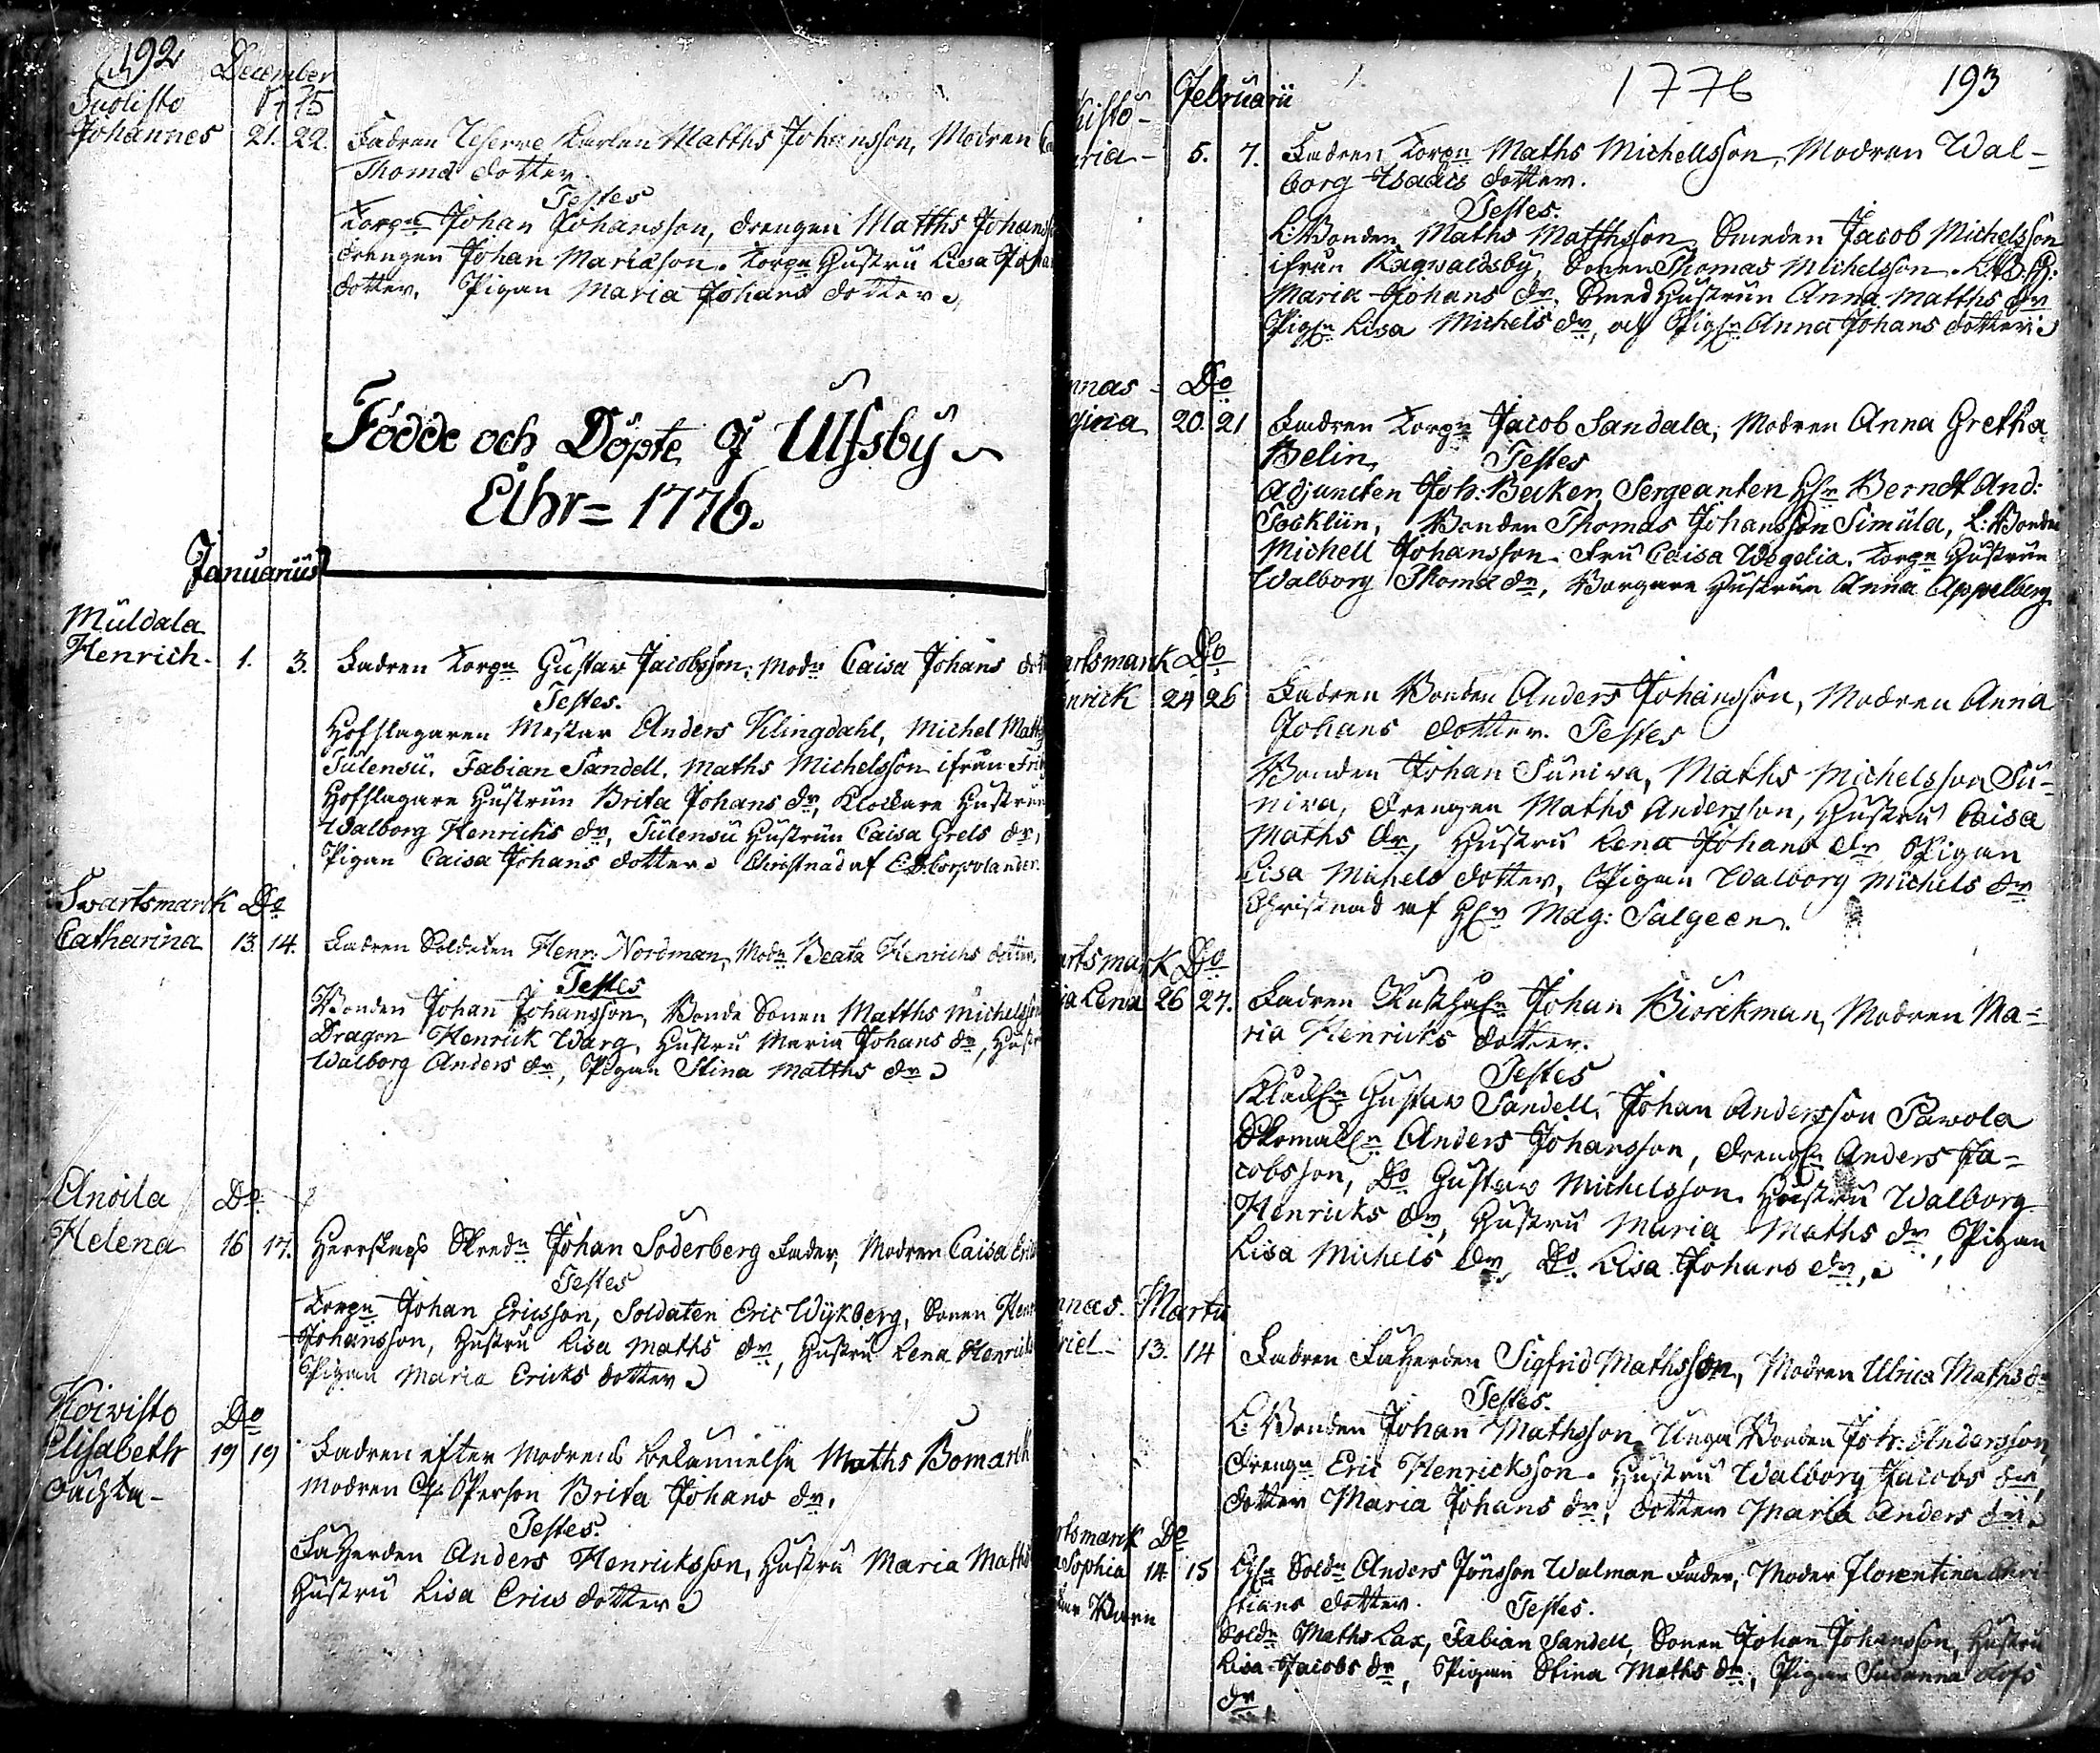 192 December
Suolisto 1775
Johannes 21. 22. Fadren Reserve Karlen Matths Johansson, Modren
Thomæ dotter.
Testes
Torpn Johan Johansson, drengen Matths Johans
drengen Johan Mariæson. Torpn Hustru Lisa Joha
dotter, Pigan Maria Johans dotter
Födde och Döpte I Ulfsby
Åhr = 1776.
Januarius
Muldala
Henrich. 1. 3. Fadren Torpn Gustav Jacobsson, Modn Caisa Johans dot
Testes.
Hofslagaren Mestar Anders Klingdahl, Michel Matth
Tulensu. Fabian Sandell. Maths Michelsson ifrån Frib
Hofslagare Hustrun Brita Johans dr, Klockare Hustrun
Walborg Henrichs dr, Tulensu Hustrun Caisa Grels dr,
Pigan Caisa Johans dotter. Christnad af
Swartsmark Do
Catharina 13. 14. Fadren Soldaten Henr: Nordman, Modn Beata Henrichs dotter.
Testes
Bonden Johan Johansson, Bonde Sonen Matths Michelsson
Dragon Henrick Warg. Hustru Maria Johans dr, Hustr
Walborg Anders dr, Pigan Stina Matths dr
Anoila Do
Helena 16 17. Herrskaps Skredn Johan Söderberg Fader, Modren Caisa Eric
Testes
Torpn Johan Ericsson, Soldaten Eric Wijkberg, Sonen Hen
Johansson, Hustru Lisa Maths dr, Hustru Lena Henrichs
Pigan Maria Ericks dotter
Koivisto Do
Elisabeth 19 19 Fadren efter Modrens bekännelse Maths Bomark
oächta - Modren Person Brita Johans dr.
Testes.
Inhyrden Anders Henricksson, Hustru Maria Maths
Hustru Lisa Erics dotter
Februarii 1776 193
visto -
ria - 5. 7. Fadren Torpn Maths Michellsson, Modren Wal-
borg Isaacs dotter.
Testes.
L: Bonden Maths Matthsson, Smeden Jacob Michelsson
ifrån Ragwaldsby, Sonen Thomas Michelsson. L:B:H:
Maria Johans dr. Smed Hustrun Anna Matths dr
Pign Lisa Michels dr, och Pign Anna Johans dotter
nnas - Do
gina 20. 21 Fadren Torpn Jacob Sandala, Modren Anna Gretha
Belin. Testes
Adjuncten Joh: Becker, Sergeanten Hr Berndt And:
Tocklin, Bonden Thomas Johansson Simula, L: Bonden
Michell Johansson. Fru Caisa Wegelia. Torpn Hustrun
Walborg Thomæ dr, Borgare Hustrun Anna Appelberg
artsmark Do
nrick 24 26 Fadren Bonden Anders Johansson, Modren Anna
Johans dotter. Testes
Bonden Johan Suniva, Maths Michelsson Su-
niva, drengen Maths Andersson, Hustru Caisa
Maths dr, Hustru Lena Johans dr Pigan
Lisa Michels dotter, Pigan Walborg Michels dr
Christnad af Hr Mag: Salgeen.
artsmark Do
ia Lena 26 27. Fadren Johan Biörckman, Modren Ma-
ria Henricks dotter.
Testes
Klockn Gustav Sandell, Johan Andersson Pawola
Skomakn Anders Johansson, drengn Anders Ja-
cobsson, Do Gustav Michelsson. Hustru Walborg
Henricks dr, Hustru Maria Maths dr, Pigan
Lisa Michels dr, Do. Lisa Johans dr,
nnas. Martii
riel - 13. 14 Fadren Inhyrden Sigfrid Mathsson, Modren Ulrica Maths dr
Testes.
L: Bonden Johan Mathsson, Unga Bonden Joh: Andersson,
drengn Eric Henricksson. Hustru Walborg Jacobs dr,
dotter Maria Johans dr, dotter Maria Anders dr.
rtsmark Do
Sophia 14 15 Soldn Anders Jönsson Walman Fader, Moder Florentina Chri
Barn stians dotter. Testes.
Soldn Maths Lax, Fabian Sandell, Sonen Johan Johansson, Hustru
Lisa Jacobs dr, Pigan Stina Maths dr, Pigan Susanna Olofs
dr